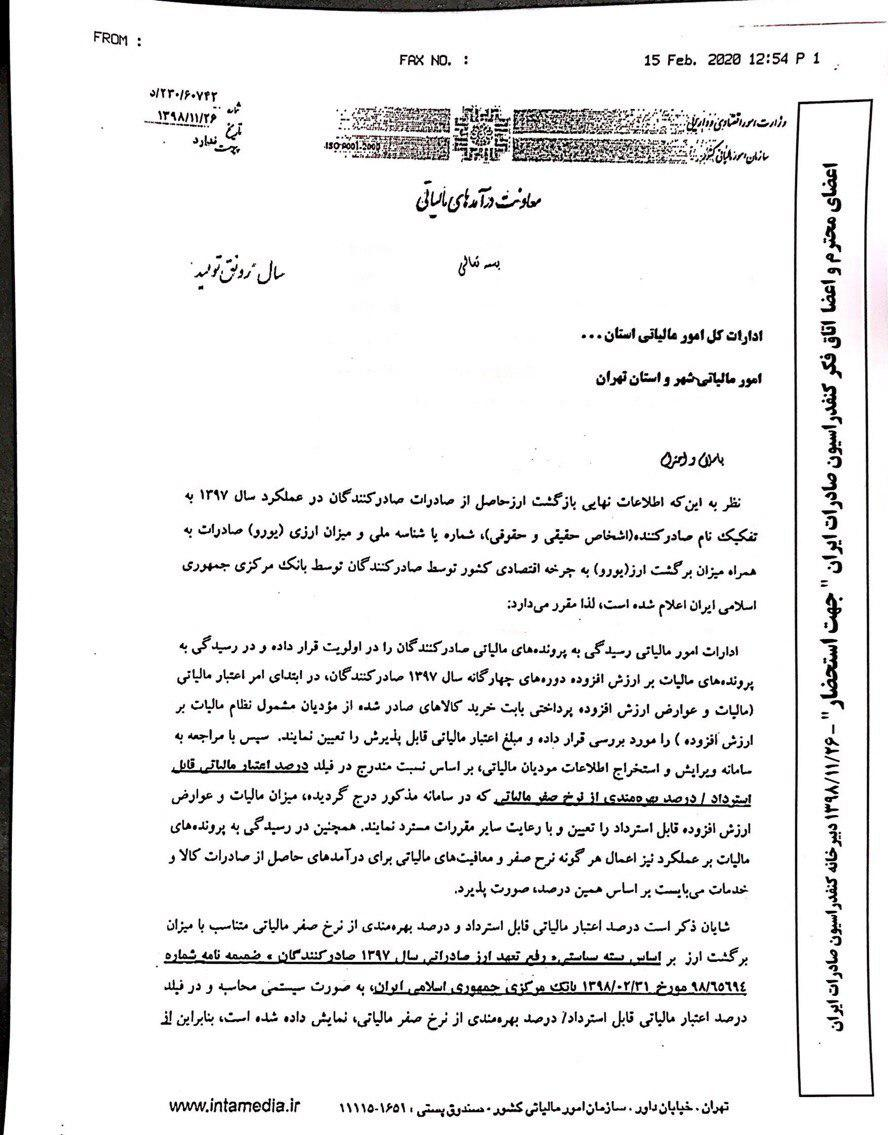 FROM :
FAX NO. :
15 Feb. 2020 12:54 P 1
شماره ۲۳۰/۶۰۷۴۲/د
تاریخ ۱۳۹۸/۱۱/۲۶
پیوست ندارد
وزارت امور اقتصادی و دارایی
سازمان امور مالیاتی کشور
ISO-9001-2000
معاونت درآمدهای مالیاتی
بسمه تعالی
سال "رونق تولید"
ادارات کل امور مالیاتی استان ...
امور مالیاتی شهر و استان تهران
باسلام و احترام
نظر به این‌که اطلاعات نهایی بازگشت ارزحاصل از صادرات صادرکنندگان در عملکرد سال ۱۳۹۷ به
تفکیک نام صادرکننده(اشخاص حقیقی و حقوقی)، شماره یا شناسه ملی و میزان ارزی (یورو) صادرات به
همراه میزان برگشت ارز(یورو) به چرخه اقتصادی کشور توسط صادرکنندگان توسط بانک مرکزی جمهوری
اسلامی ایران اعلام شده است، لذا مقرر می‌دارد:
ادارات امور مالیاتی رسیدگی به پرونده‌های مالیاتی صادرکنندگان را در اولویت قرار داده و در رسیدگی به
پرونده‌های مالیات بر ارزش افزوده دوره‌های چهارگانه سال ۱۳۹۷ صادرکنندگان، در ابتدای امر اعتبار مالیاتی
(مالیات و عوارض ارزش افزوده پرداختی بابت خرید کالاهای صادر شده از مؤدیان مشمول نظام مالیات بر
ارزش افزوده ) را مورد بررسی قرار داده و مبلغ اعتبار مالیاتی قابل پذیرش را تعیین نمایند. سپس با مراجعه به
سامانه ویرایش و استخراج اطلاعات مودیان مالیاتی، بر اساس نسبت مندرج در فیلد درصد اعتبار مالیاتی قابل
استرداد / درصد بهره‌مندی از نرخ صفر مالیاتی که در سامانه مذکور درج گردیده، میزان مالیات و عوارض
ارزش افزوده قابل استرداد را تعیین و با رعایت سایر مقررات مسترد نمایند. همچنین در رسیدگی به پرونده‌های
مالیات بر عملکرد نیز اعمال هر گونه نرح صفر و معافیت‌های مالیاتی برای درآمدهای حاصل از صادرات کالا و
خدمات می‌بایست بر اساس همین درصد، صورت پذیرد.
شایان ذکر است درصد اعتبار مالیاتی قابل استرداد و درصد بهره‌مندی از نرخ صفر مالیاتی متناسب با میزان
برگشت ارز بر اساس بسته سیاستی« رفع تعهد ارز صادراتی سال ۱۳۹۷ صادرکنندگان » ضمیمه نامه شماره
۹۸/۶۵۶۹۴ مورخ ۱۳۹۸/۰۲/۳۱ بانک مرکزی جمهوری اسلامی ایران، به صورت سیستمی محاسبه و در فیلد
درصد اعتبار مالیاتی قابل استرداد/ درصد بهره‌مندی از نرخ صفر مالیاتی، نمایش داده شده است، بنابراین از
تهران . خیابان داور . سازمان امور مالیاتی کشور . صندوق پستی : ۱۶۵۱-۱۱۱۱۵
www.intamedia.ir
اعضای محترم و اعضا اتاق فکر کنفدراسیون صادرات ایران "جهت استحضار" - ۱۳۹۸/۱۱/۲۶ دبیرخانه کنفدراسیون صادرات ایران